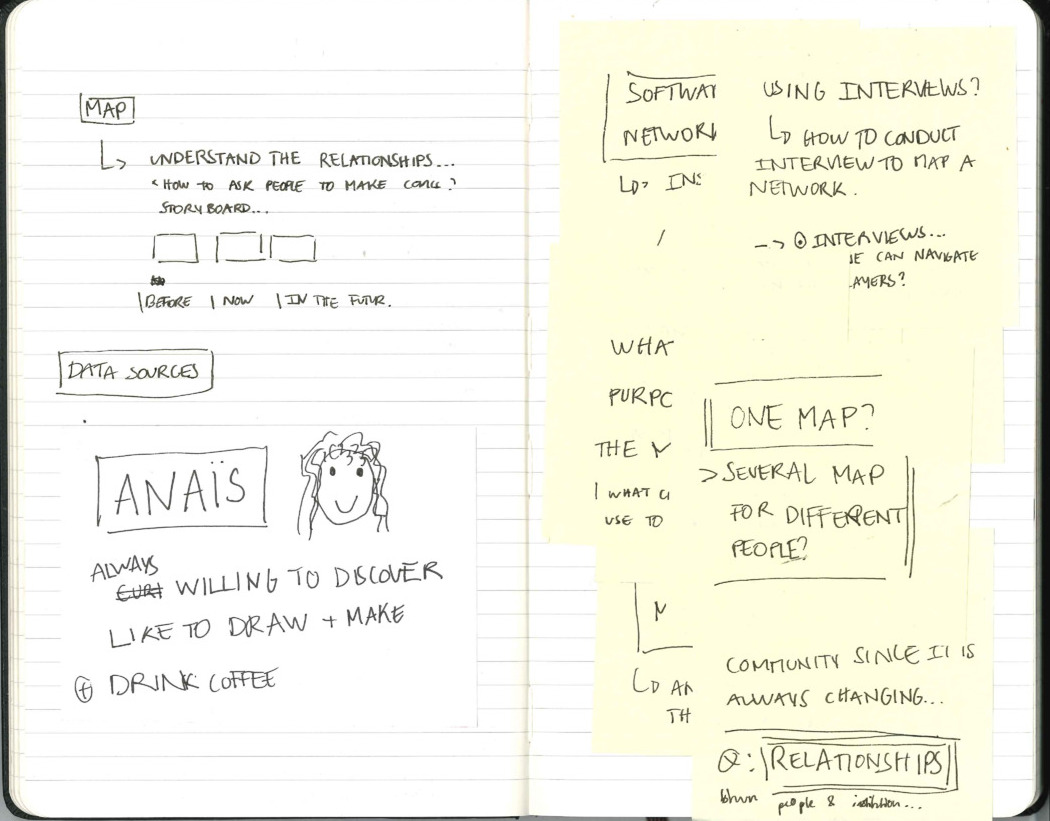 MAP
UNDERSTAND THE RELATIONSHIPS...
HOW TO ASK PEOPLE TO MAKE ?
STORYBOARD...
|BEFORE | NOW | IN THE FUTUR.
DATA SOURCES
ANAÏS
ALWAYS
WILLING TO DISCOVER
LIKE TO DRAW + MAKE
+ DRINK COFFEE
SOFTWAR
NETWORK
INS
/
WHA
PURPO
THE
| WHAT
USE TO
AN
TH
USING INTERVIEWS?
HOW TO CONDUCT
INTERVIEW TO MAP A
NETWORK.
--> INTERVIEWS...
E CAN NAVIGATE
AYERS?
ONE MAP?
> SEVERAL MAP
FOR DIFFERENT
PEOPLE?
COMMUNITY SINCE IT IS
ALWAYS CHANGING...
Q: RELATIONSHIPS
people & institution...